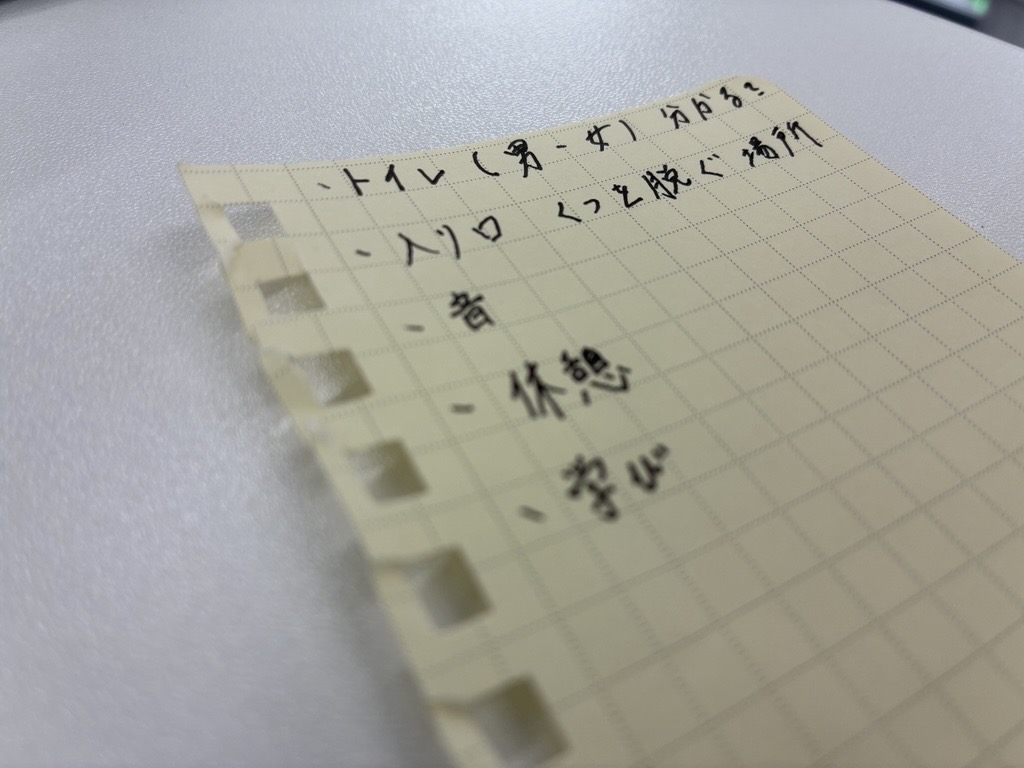 ・トイレ(男・女) 分かる?
・入り口 くつを脱ぐ場所
・音
・休憩
・学び